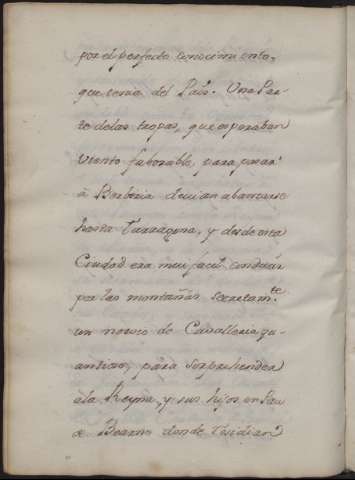 por el perfecto conocimiento,
que tenia del Pais. Una Par-
te de las tropas, que esperaban
viento faborable, para pasar
à Berberia devian abanzarse
hasta Tarragona, y desde esta
Ciudad era mui facil conducir
por las montañas secretam.te
un nomero de Cavalleria qu-
antioso, para sorprehender
a la Reyna, y sus hijos en Pau
de Bearne donde residian